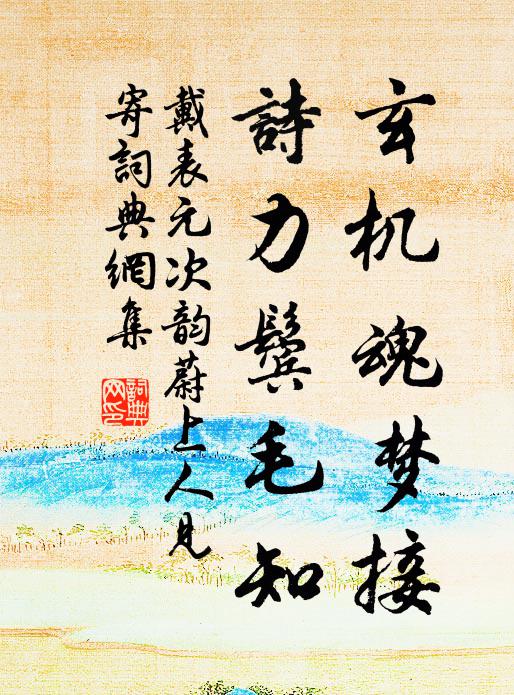 玄机魂梦接
詩力鬓毛知
戴表元次韵蔚上人見
寄詞典網集
詞典网印